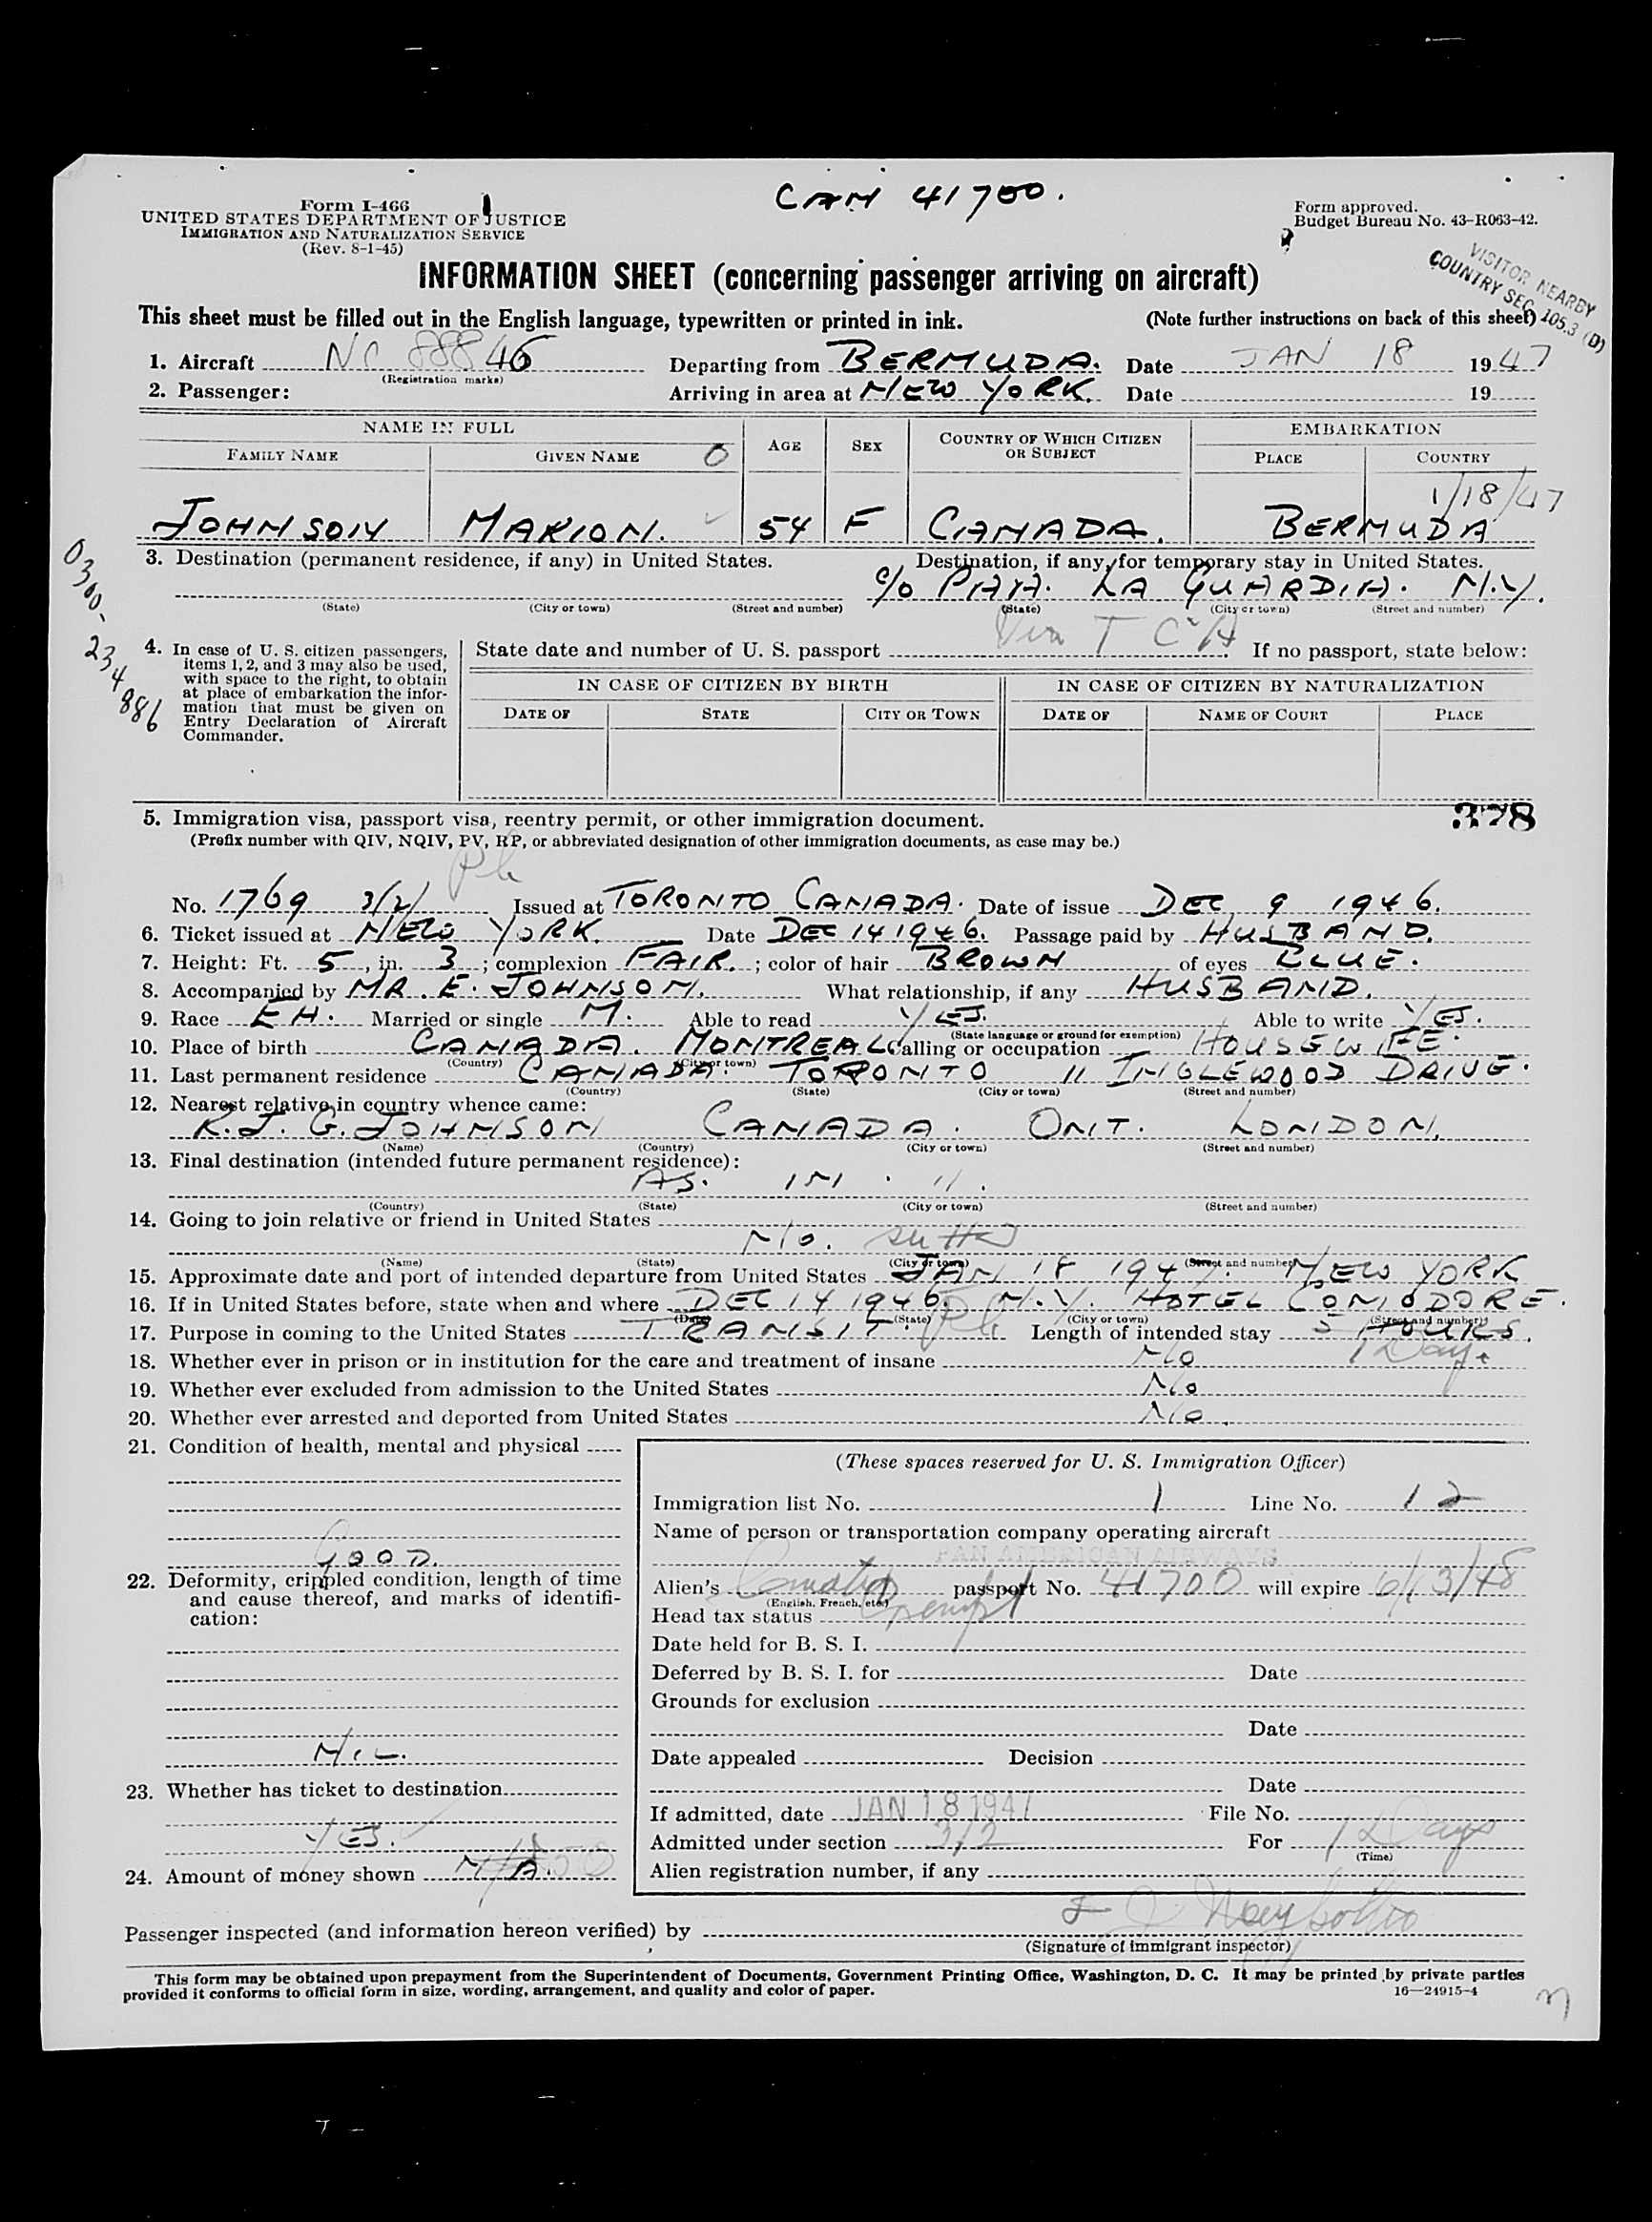 CAN 41700.
Form I-466
UNITED STATES DEPARTMENT OF JUSTICE
IMMIGRATION AND NATURALIZATION SERVICE
(Rev. 8-1-45)
Form approved.
Budget Bureau No. 43-R063-42.
VISITOR NEARBY
COUNTRY SEC. 105.3 (D)
INFORMATION SHEET (concerning passenger arriving on aircraft)
This sheet must be filled out in the English language, typewritten or printed in ink. (Note further instructions on back of this sheet)
1. Aircraft NC 88846 Departing from BERMUDA. Date JAN 18 1947
(Registration marks)
2. Passenger: Arriving in area at NEW YORK. Date 19
NAME IN FULL AGE SEX COUNTRY OF WHICH CITIZEN OR SUBJECT EMBARKATION
FAMILY NAME GIVEN NAME O PLACE COUNTRY
1/18/47
JOHNSON MARION. 54 F CANADA. BERMUDA
0300-234886
3. Destination (permanent residence, if any) in United States. Destination, if any, for temporary stay in United States.
c/o PAA. LA GUARDIA. N.Y.
(State) (City or town) (Street and number) (State) (City or town) (Street and number)
Via T C A
4. In case of U. S. citizen passengers, items 1, 2, and 3 may also be used, with space to the right, to obtain at place of embarkation the information that must be given on Entry Declaration of Aircraft Commander.
State date and number of U. S. passport If no passport, state below:
IN CASE OF CITIZEN BY BIRTH IN CASE OF CITIZEN BY NATURALIZATION
DATE OF STATE CITY OR TOWN DATE OF NAME OF COURT PLACE
378
5. Immigration visa, passport visa, reentry permit, or other immigration document.
(Prefix number with QIV, NQIV, PV, RP, or abbreviated designation of other immigration documents, as case may be.)
No. 1769 3/2/ Issued at TORONTO CANADA. Date of issue DEC 9 1946.
6. Ticket issued at NEW YORK. Date DEC 14 1946. Passage paid by HUSBAND.
7. Height: Ft. 5, in. 3; complexion FAIR.; color of hair BROWN of eyes BLUE.
8. Accompanied by MR. E. JOHNSON. What relationship, if any HUSBAND.
9. Race EH. Married or single M. Able to read YES. Able to write YES.
(State language or ground for exemption)
10. Place of birth CANADA. MONTREAL Calling or occupation HOUSEWIFE.
(Country) (City or town)
11. Last permanent residence CANADA. TORONTO 11 INGLEWOOD DRIVE.
(Country) (State) (City or town) (Street and number)
12. Nearest relative in country whence came:
R.J.G. JOHNSON CANADA. ONT. LONDON.
(Name) (Country) (City or town) (Street and number)
13. Final destination (intended future permanent residence):
AS. IN. 11.
(Country) (State) (City or town) (Street and number)
14. Going to join relative or friend in United States
NO.
(Name) (State) (City or town) (Street and number)
15. Approximate date and port of intended departure from United States JAN 18 1947. NEW YORK
16. If in United States before, state when and where DEC 14 1946. N.Y. HOTEL COMODORE.
(Date) (State) (City or town) (Street and number)
17. Purpose in coming to the United States TRANSIT. Length of intended stay 5 HOURS.
1 Day
18. Whether ever in prison or in institution for the care and treatment of insane NO
19. Whether ever excluded from admission to the United States NO
20. Whether ever arrested and deported from United States NO.
21. Condition of health, mental and physical
GOOD.
22. Deformity, crippled condition, length of time and cause thereof, and marks of identification:
NIL.
23. Whether has ticket to destination
YES.
24. Amount of money shown N/A.
(These spaces reserved for U. S. Immigration Officer)
Immigration list No. 1 Line No. 12
Name of person or transportation company operating aircraft
PAN AMERICAN AIRWAYS
Alien's Canadian passport No. 41700 will expire 6/13/48
(English, French, etc.)
Head tax status Exempt
Date held for B. S. I.
Deferred by B. S. I. for Date
Grounds for exclusion
Date
Date appealed Decision
Date
If admitted, date JAN 18 1947 File No.
Admitted under section 3/2 For 1 Day
(Time)
Alien registration number, if any
Passenger inspected (and information hereon verified) by
(Signature of immigrant inspector)
This form may be obtained upon prepayment from the Superintendent of Documents, Government Printing Office, Washington, D. C. It may be printed by private parties
provided it conforms to official form in size, wording, arrangement, and quality and color of paper. 16—24915-4